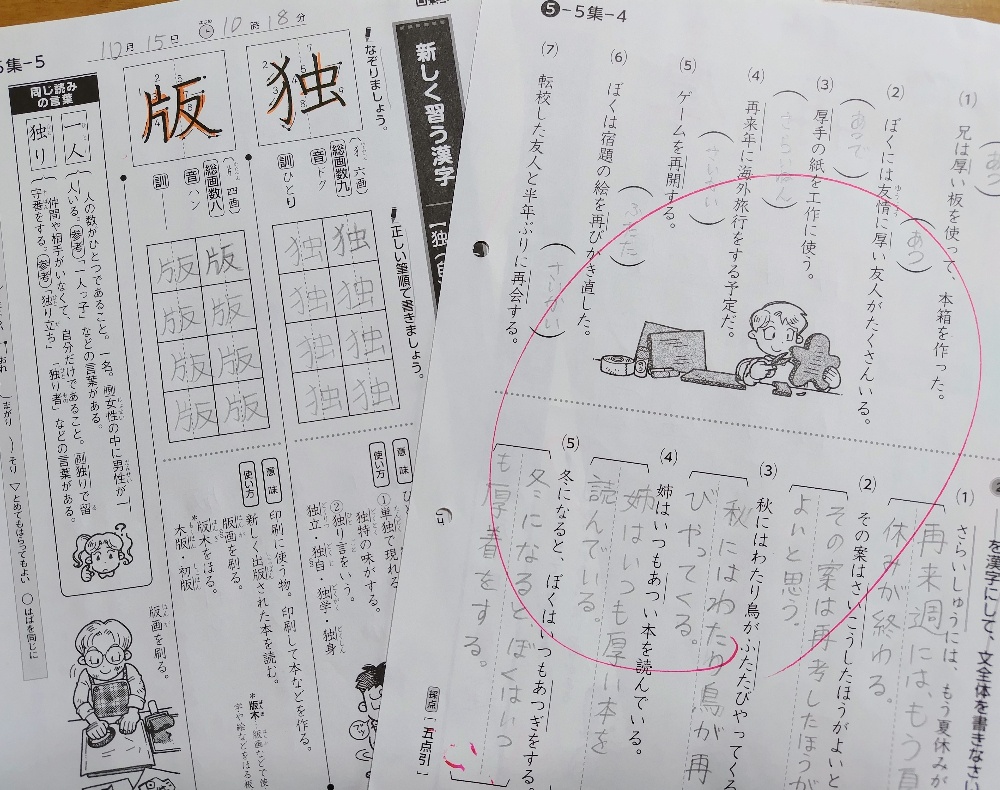 ❺-5集-4
(1) 兄は厚い板を使って、本箱を作った。
(2) ぼくには友情に厚い友人がたくさんいる。
(あつ)
(3) 厚手の紙を工作に使う。
(あつで)
(4) 再来年に海外旅行をする予定だ。
(さらいねん)
(5) ゲームを再開する。
(さいかい)
(6) ぼくは宿題の絵を再びかき直した。
(ふたた)
(7) 転校した友人と半年ぶりに再会する。
(さいかい)
を漢字にして、文全体を書きなさい
(1) さらいしゅうには、もう夏休みが
再来週には、もう夏
休みが終わる。
(2) その案はさいこうしたほうがよいと
その案は再考したほうが
よいと思う。
(3) 秋にはわたり鳥がふたたびやってくる
秋にはわたり鳥が再
びやってくる。
(4) 姉はいつもあつい本を読んでいる。
姉はいつも厚い本を
読んでいる。
(5) 冬になると、ぼくはいつもあつぎをする。
冬になるとぼくはいつ
も厚着をする。
採点 一五点引
集-5
12月15日 10時18分
新しく習う漢字
なぞりましょう。
独
(犭 六画)
総画数九
音 ドク
訓 ひとり
版
四画)
総画数八
音 ハン
訓
正しい筆順で書きましょう。
独 独
独 独
独 独
独 独
版 版
版 版
版 版
版 版
意味
使い方
①単独で現れる
独特の味がする。
②独り言をいう。
独立・独自・独学・独身
意味
印刷に使う物。印刷して本などを作る。
使い方
新しく出版された本を読む。
版画を刷る。
版木をほる。
木版・初版
*版木
版画を刷る。
同じ読みの言葉
一人
人の数がひとつであること。一名。例女性の中に男性が一
人いる。参考「一人っ子」などの言葉がある。
独り
仲間や相手がいなくて、自分だけであること。例独りで留
守番をする。参考「独り立ち」「独り者」などの言葉がある。
▽とめてもはらってもよい ○はばを同じに